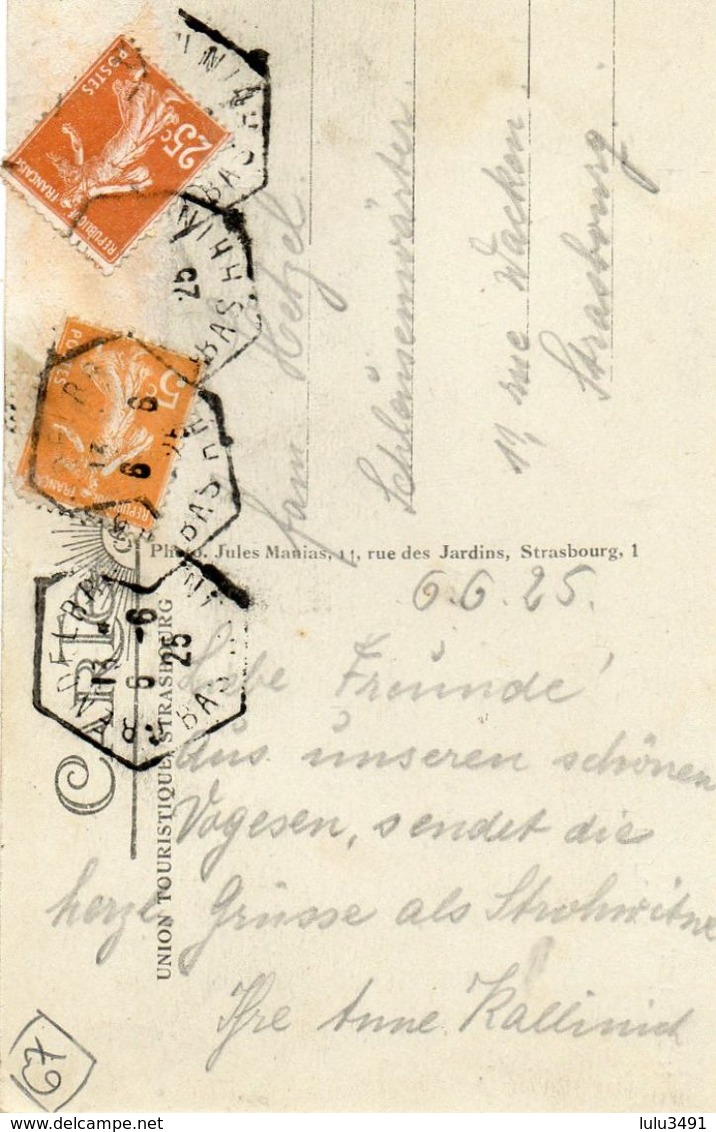 25c
POSTES
REPUBLIQUE FRANÇAISE
5c
POSTES
BAS RHIN
13
6 - 6
25
Fam Hetzel
Schleusenwärter
17 rue Wacken
Strasbourg.
Photo. Jules Manias, 14, rue des Jardins, Strasbourg, 1
UNION TOURISTIQUE STRASBOURG
6.6.25.
Liebe Freunde!
Aus unseren schönen
Vogesen, sendet die
herzl Grüsse als Strohwitwe
Ihre Anne Kallinich
67
lulu3491